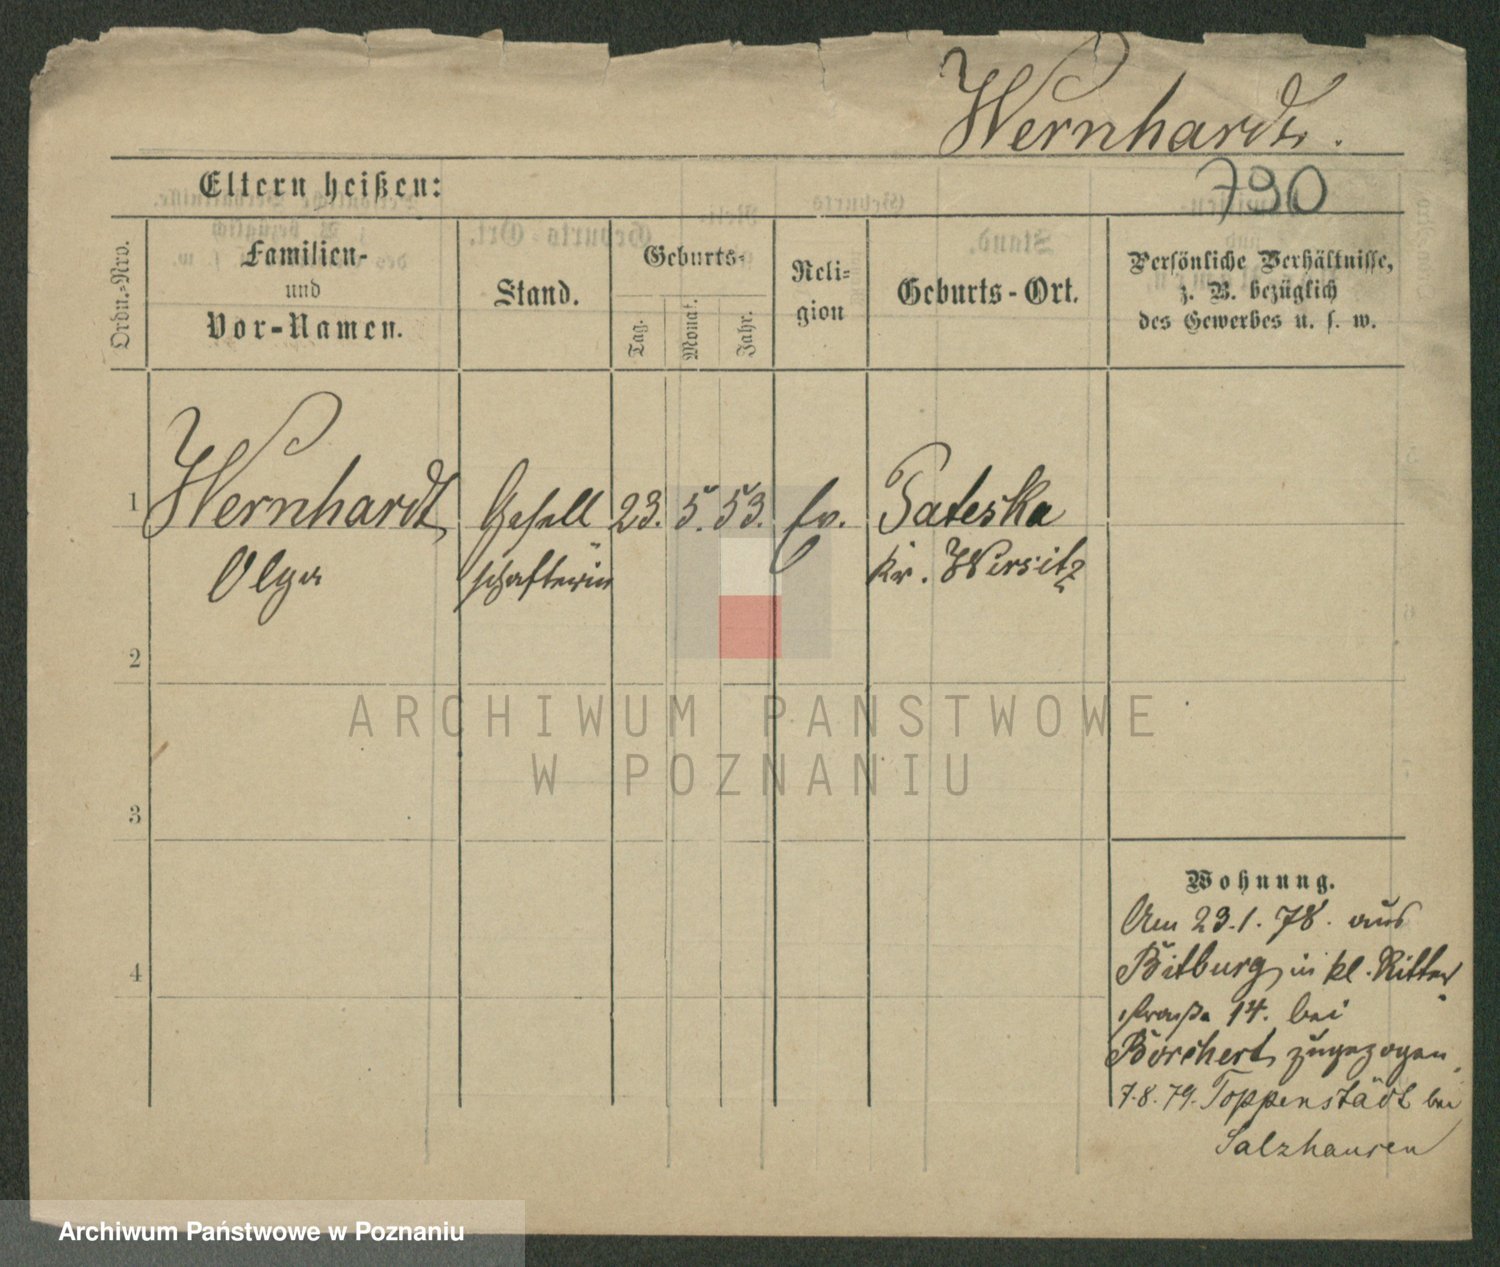 Wernhardt.
790
Eltern heißen:
Ordn.-Nro.
Familien-
und
Vor-Namen.
Stand.
Geburts-
Tag.
Monat.
Jahr.
Reli-
gion
Geburts-Ort.
Persönliche Verhältnisse,
z. B. bezüglich
des Gewerbes u. s. w.
1 Wernhardt Gesell 23. 5. 53. Ev. Pateska
Olga schafterin Kr. Wirsitz
2
3
4
Wohnung.
Am 23.1.78. aus
Bitburg in kl. Ritter
straße 14. bei
Borchert zugezogen
7.8.79. Toppenstädt bei
Salzhausen
ARCHIWUM PAŃSTWOWE
W POZNANIU
Archiwum Państwowe w Poznaniu